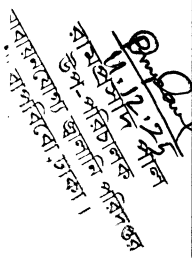 11.12.25
রামপ্রসাদ পাল
উপ-পরিচালক
নবায়নযোগ্য জ্বালানি পরিদপ্তর
বাপবিবো, ঢাকা।